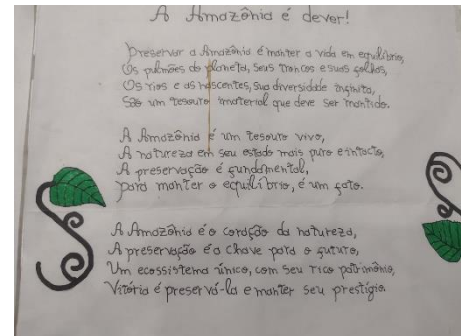 A Amazônia é dever!
Preservar a Amazônia é manter a vida em equilíbrio,
Os pulmões do planeta, seus troncos e suas folhas,
Os rios e as nascentes, sua diversidade infinita,
São um tesouro imaterial que deve ser mantido.
A Amazônia é um tesouro vivo,
A natureza em seu estado mais puro e intacto,
A preservação é fundamental,
para manter o equilíbrio, é um fato.
A Amazônia é o coração da natureza,
A preservação é a chave para o futuro,
Um ecossistema único, com seu rico patrimônio,
Vitória é preservá-la e manter seu prestígio.